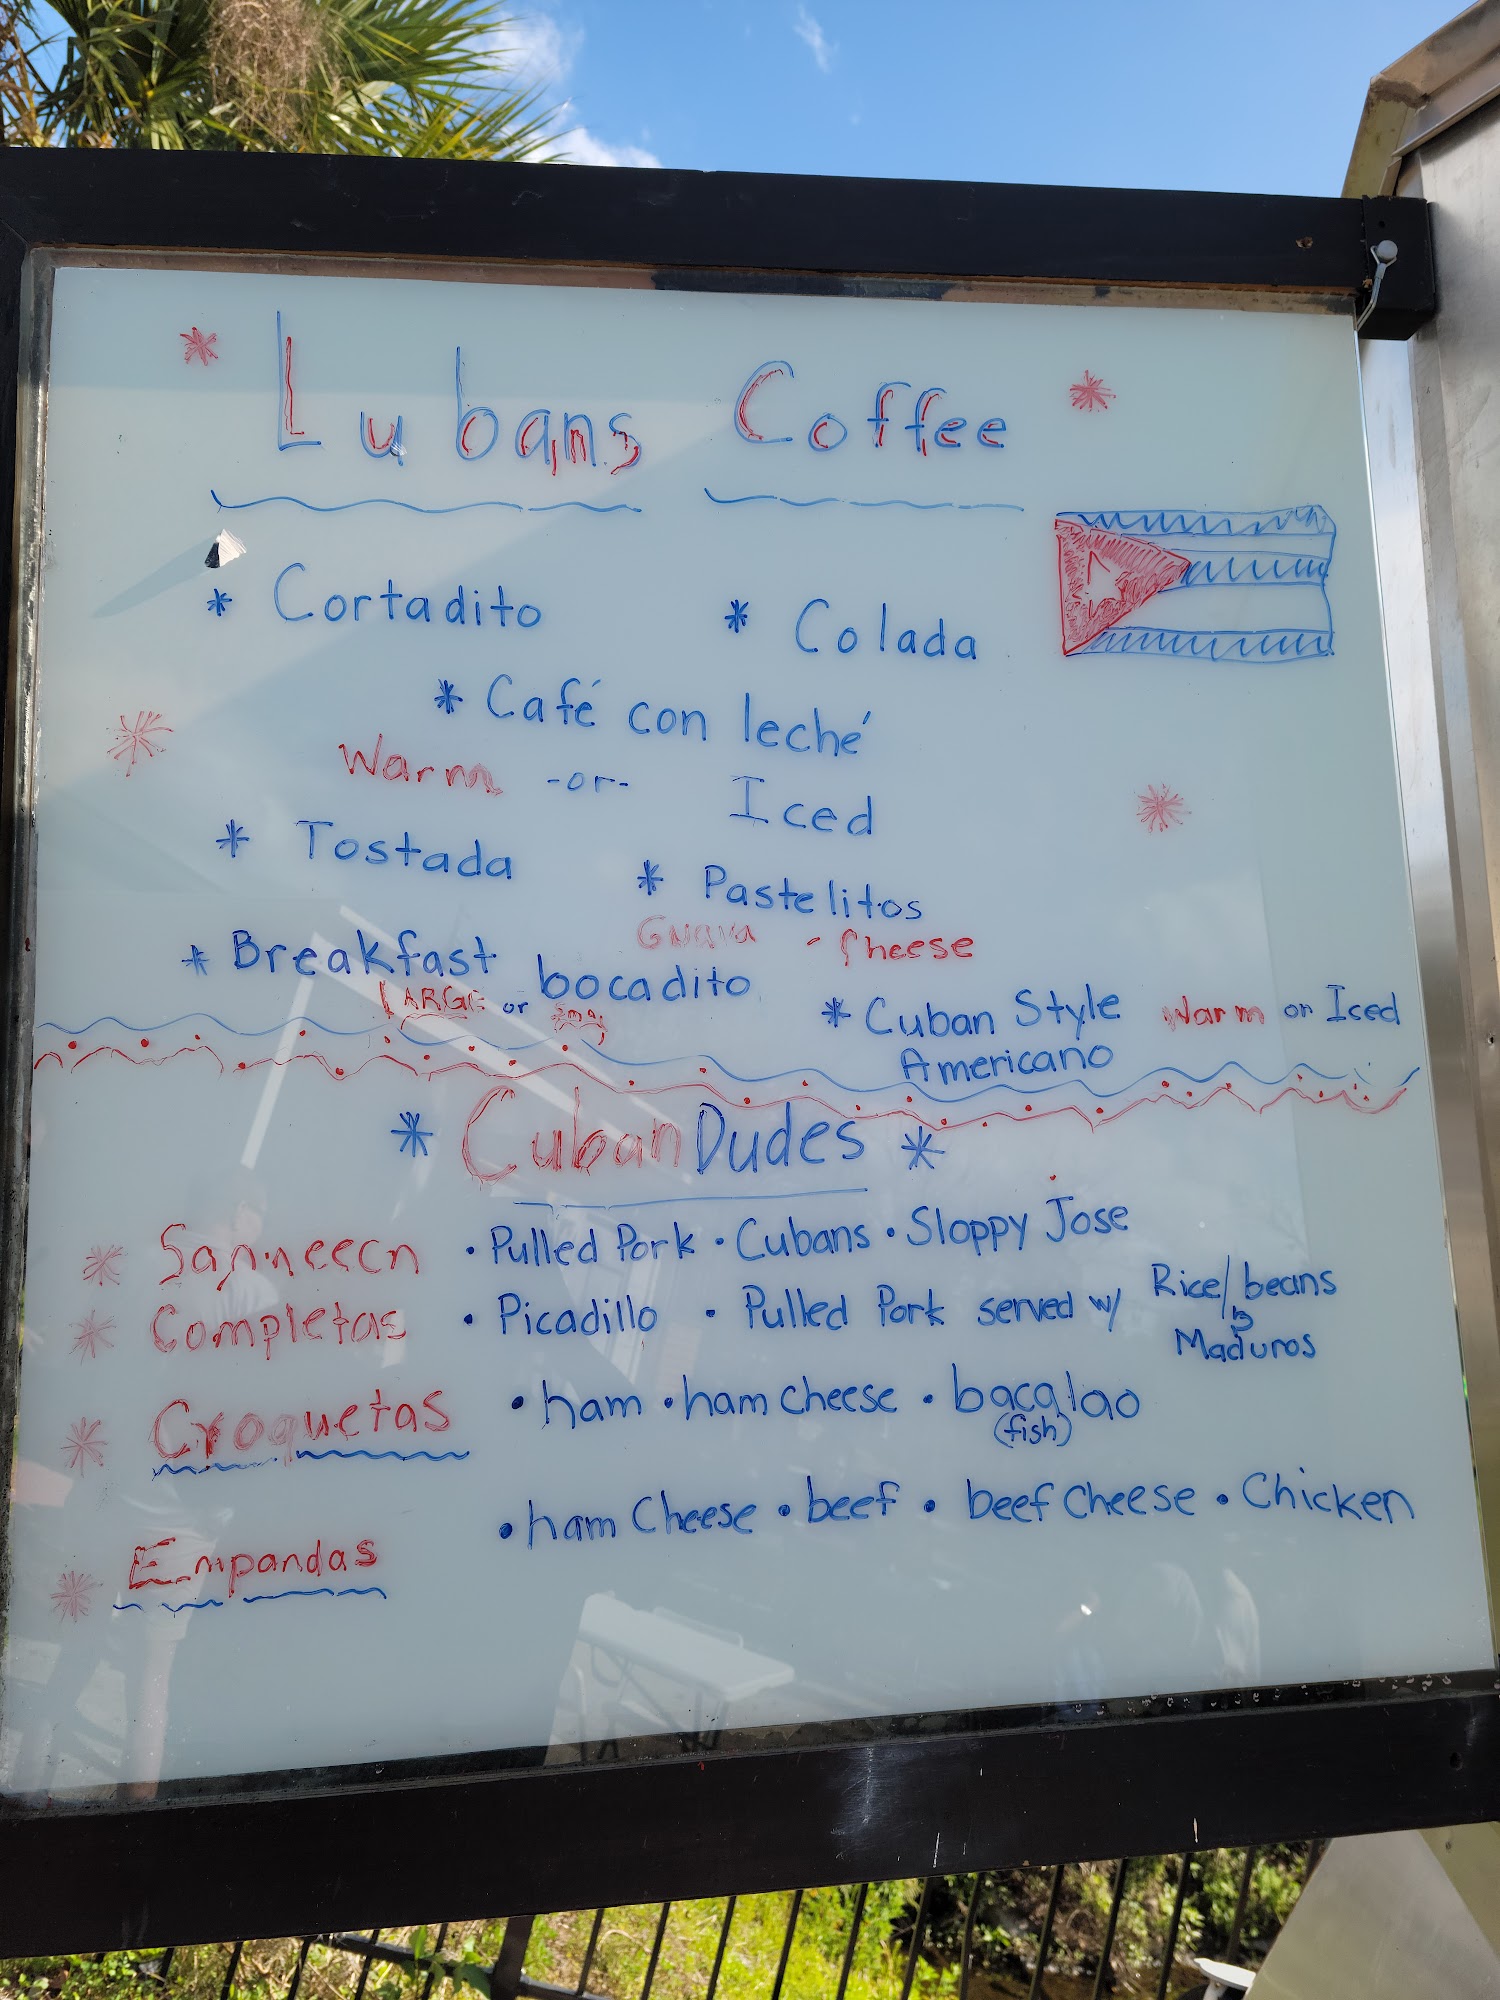 Lubans Coffee
* Cortadito * Colada
* Café con leché
Warm -or- Iced
* Tostada * Pastelitos
Guava - Cheese
* Breakfast bocadito
LARGE or
* Cuban Style Warm or Iced
Americano
* Cuban Dudes *
* • Pulled Pork • Cubans • Sloppy Jose
* Completas • Picadillo • Pulled Pork served w/ Rice/beans
Maduros
* Croquetas • ham • ham cheese • bacalao
(fish)
* Empandas • ham Cheese • beef • beef cheese • Chicken